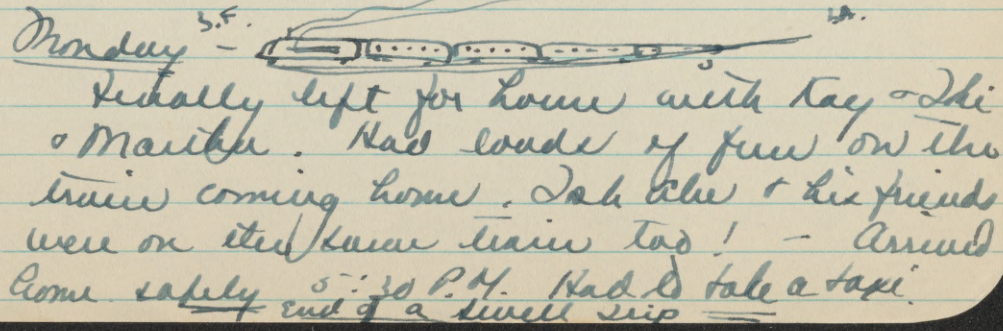 Monday - S.F. L.A.
Finally left for home with Kay &
& Martha. Had loads of fun on the
train coming home. & his friends
were on the same train too! - Arrived
home safely 5:30 P.M. Had to take a taxi.
End of a swell trip